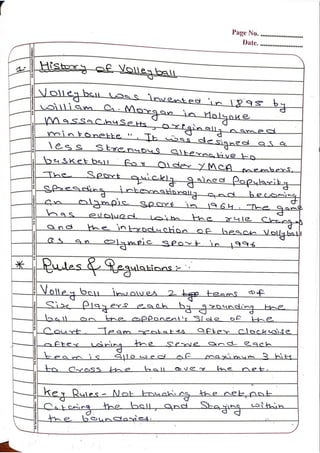 Page No. ..................
Date. ..................
History of Volleyball
Volleyball was invented in 1895 by
william G. Morgan in Holyoke
Massachusetts, originally named
mintonette". It was designed as a
less strenuous alternative to
basketball for older YMCA members.
The sport quickly gained Popularity
spreading internationally and becoming
an olympic sport in 1964. The game
has evolved with the rule changes
and the introduction of beach Volleyball
as an olympic sport in 1996
* Rules & Regulations :-
Volleyball involves 2 teams of
Six Players each by grounding the
ball on the opponent's side of the
Court. Team rotates after clockwise
after the serve and each
team is allowed of maximum 3 hits
to cross the ball over the net.
Key Rules - Not touching the net, not
Catering the ball, and Staying within
the boundaries.